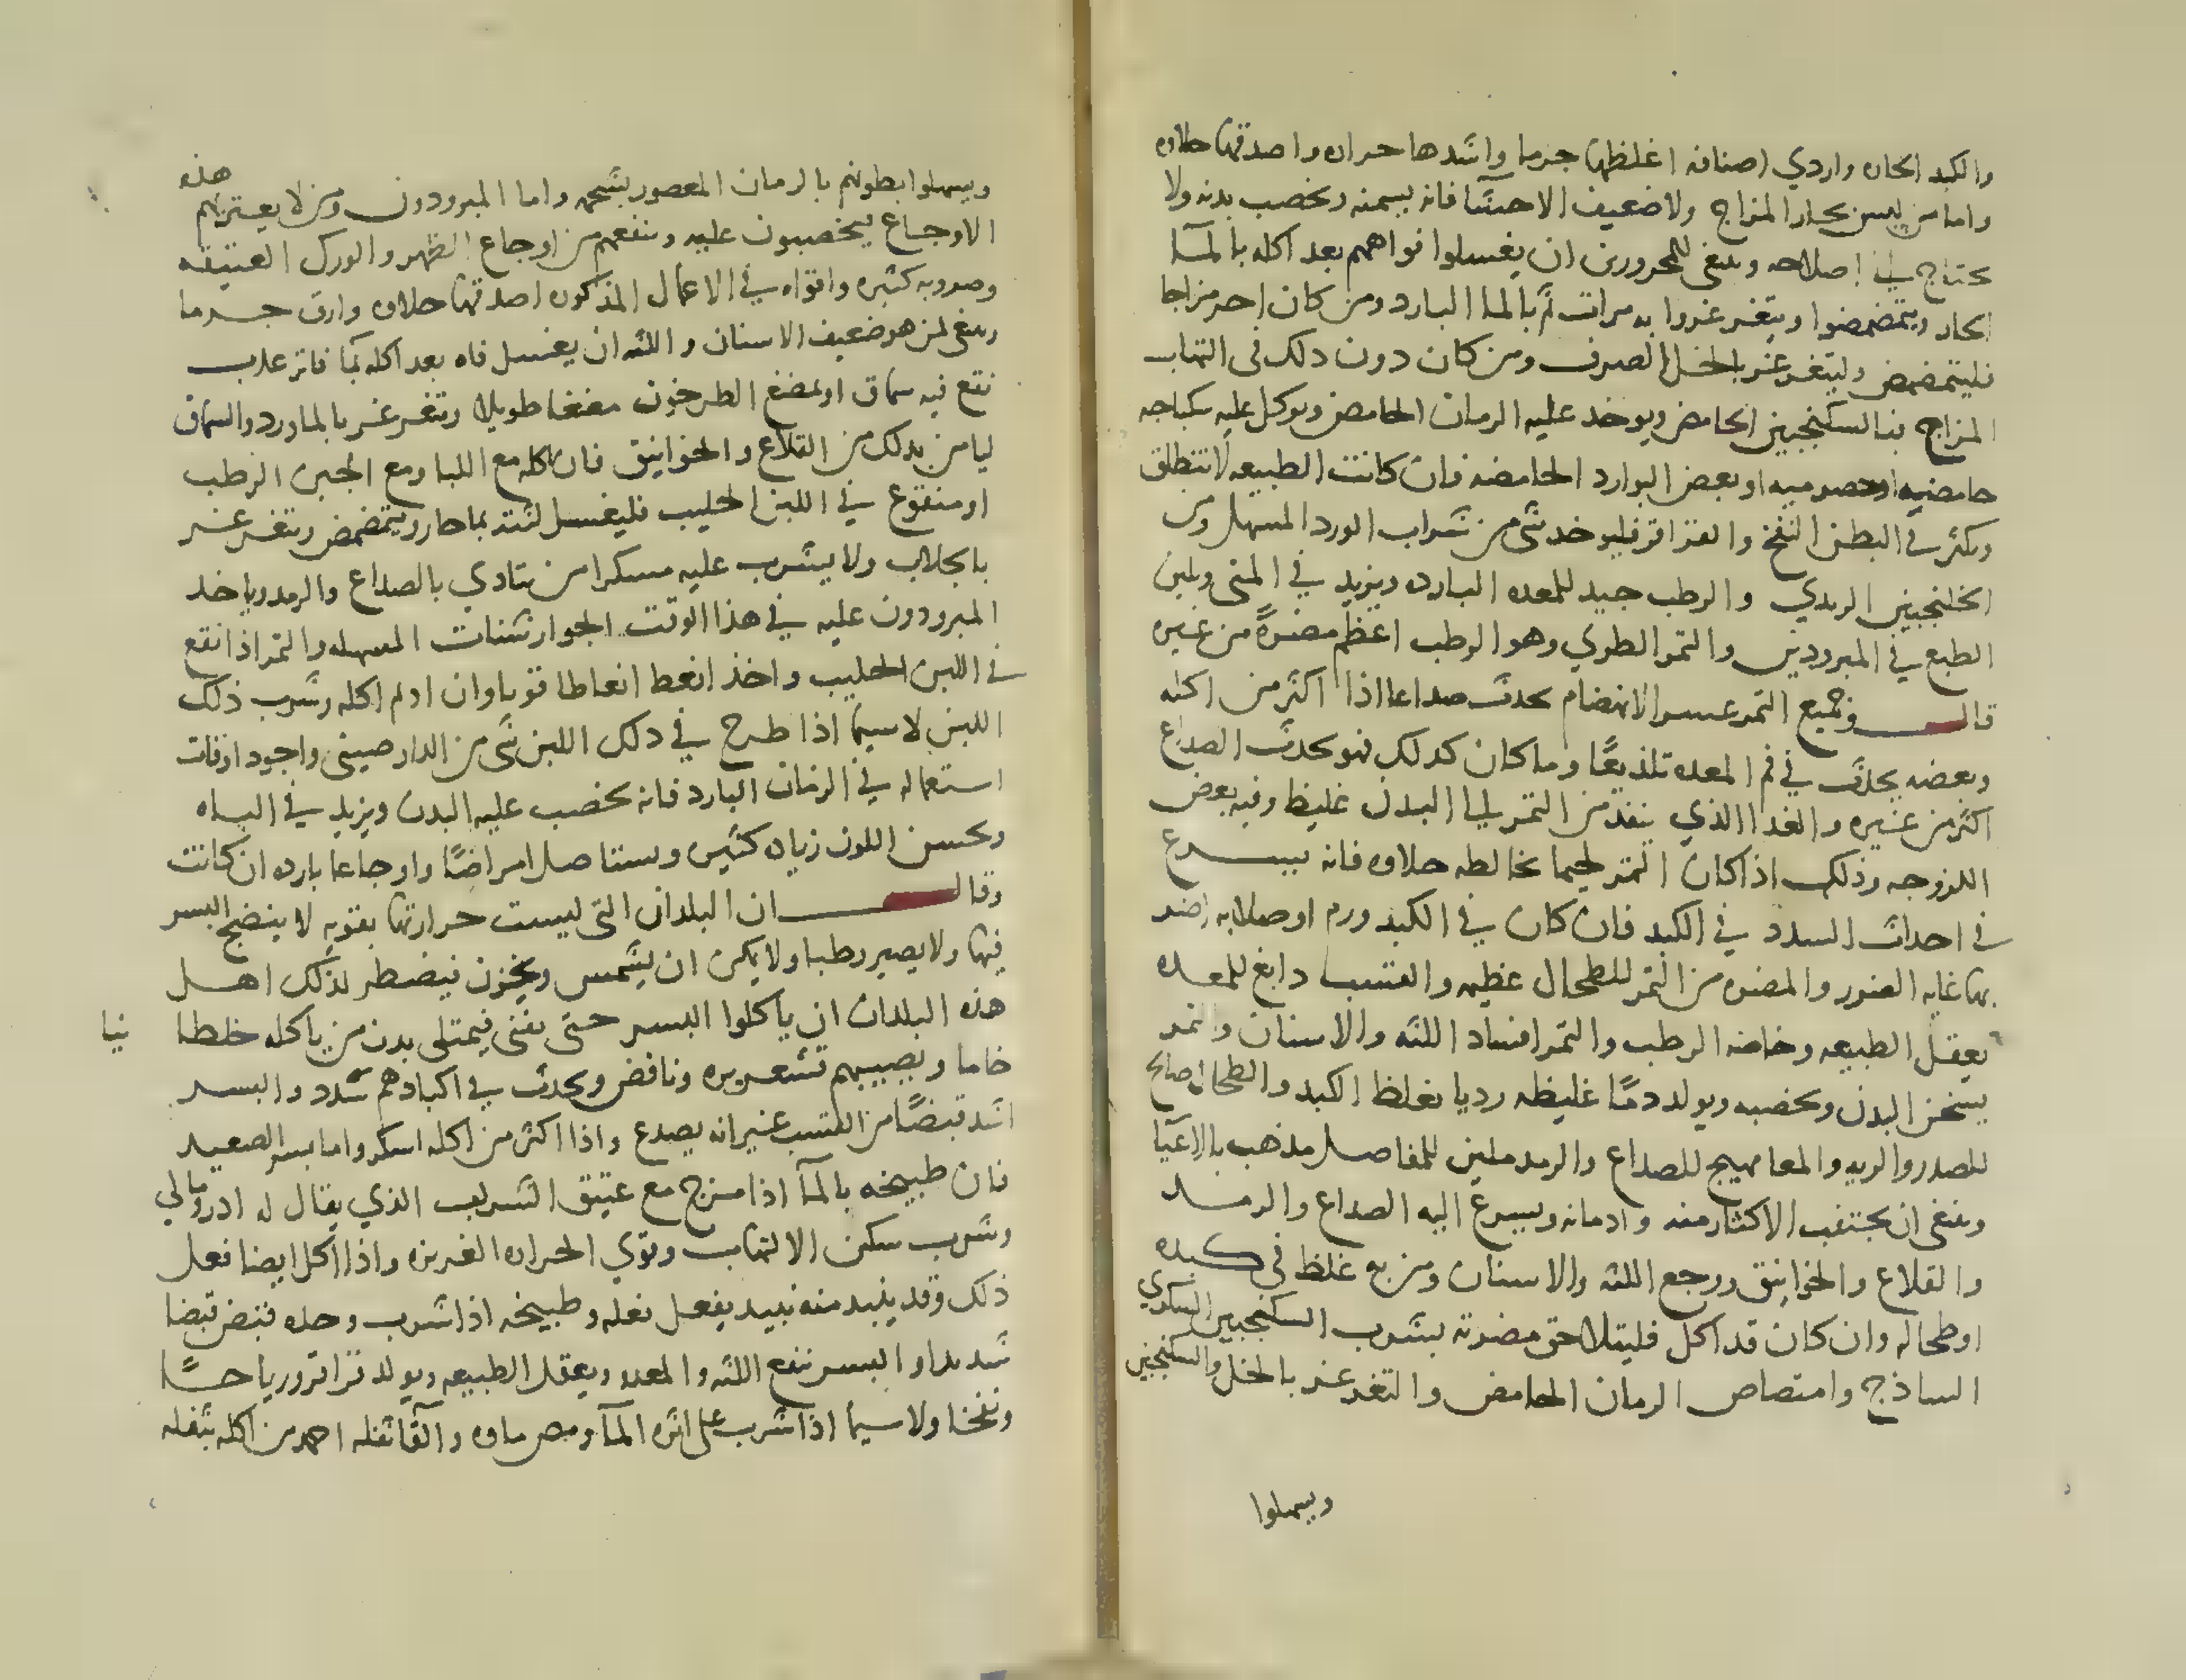 والكبد الحاره واردي اصنافه اغلظها جرما واشدها حراره واصدقها حلاوه
واما من ليس بحار المزاج ولا ضعيف الاحشا فانه يسمنه ويخصب بدنه ولا
يحتاج الى اصلاحه وينبغي للمحرورين ان يغسلوا افواههم بعد اكله بالمآ
الحار ويتمضمضوا ويتغرغروا به مرات ثم بالما البارد ومن كان احر مزاجا
فليتمضمض وليتغرغر بالخل الصرف ومن كان دون ذلك في التهاب
المزاج فبالسكنجبين الحامض ويوخد عليه الرمان الحامض ويوكل عليه سكباجه
حامضيه او حصرميه او بعض البوارد الحامضه فان كانت الطبيعه لا تنطلق
ويكثر في البطن النفخ والقراقر فليوخد شي من شراب الورد المسهل ومن
الجلنجبين الربدي والرطب جيد للمعده البارده ويزيد في المني ويلين
الطبع في المبرودين والتمر الطري وهو الرطب اعظم مضرةً من غيره
قال وجميع التمر عسر الانهضام يحدث صداعا اذا اكثر من اكله
وبعضه يحدث في فم المعده تلذيعًا وما كان كدلك فهو يحدث الصداع
اكثر من غيره والغدا الذي ينفد من التمر الى البدن غليظ وفيه بعض
اللزوجه وذلك اذا كان التمر لحيما يخالطه حلاوه فانه يسرع
في احداث السدد في الكبد فان كان في الكبد ورم او صلابه اضر
بها غايه الضرر والمضره من التمر للطحال عظيمه والقسب دابغ للمعده
يعقل الطبيعه وخاصه الرطب والتمر افساد اللثه والاسنان والتمر
يسخن البدن ويخصبه ويولد دمًا غليظه رديا يغلظ الكبد والطحال صالح
للصدر والريه والمعا مهيج للصداع والرمد ملين للمفاصل مذهب بالاعيآ
وينبغي ان يجتنب الاكثار منه وادمانه ويسرع اليه الصداع والرمد
والقلاع والخوانيق ووجع اللثه والاسنان ومن به غلظ في كبده
او طحاله وان كان قد اكل فليتلاحق مضرته بشرب السكنجبين السكري
الساذج وامتصاص الرمان الحامض والتغرغر بالخل والسكنجبين
ويسهلوا
ويسهلوا بطونهم بالرمان المعصور بشحمه واما المبرودون ومن لا يعتريهم هذه
الاوجاع يخصبون عليه وينفعهم من اوجاع الظهر والورك العتيقه
وضروبه كثيره واقواه في الاعمال المذكوره اصدقها حلاوه وارق جرما
وينبغي لمن هو ضعيف الاسنان واللثه ان يغسل فاه بعد اكله بما فاتر عذب
نقع فيه سماق او يمضغ الطرخون مضغا طويلا ويتغرغر بالماورد والسماق
ليامن بدلك من القلاع والخوانيق فان اكله مع اللبا ومع الجبن الرطب
او منقوع في اللبن الحليب فليغسل لثته بما حار ويتمضمض ويتغرغر
بالجلاب ولا يشرب عليه مسكرا من يتاذي بالصداع والرمد وياخد
المبرودون عليه في هذا الوقت الجوارشنات المسهله والتمر اذا نقع
في اللبن الحليب واخذ انعط انعاطا قويا وان ادام اكله وشرب ذلك
اللبن لا سيما اذا طرح في دلك اللبن شي من الدار صيني واجود اوقات
استعماله في الزمان البارد فانه يخصب عليه البدن ويزيد في الباه
ويحسن اللون زياده كثيره ويستاصل امراضًا واوجاعا بارده ان كانت
وقال ان البلدان التي ليست حرارتها بقويه لا ينضج البسر
فيها ولا يصير رطبا ولا يمكن ان يشمس ويخزن فيضطر لذلك اهل
هذه البلدان ان ياكلوا البسر حتى يفني فيمتلي بدن من ياكله خلطا نيا
خاما ويصيبهم قشعريره ونافض ويحدث في اكبادهم سدد والبسر
اشد قبضًا من القسب غير انه يصدع واذا اكثر من اكله اسكر واما بسر الصعيد
فان طبيخه بالمآ اذا مزج مع عتيق الشراب الذي يقال له ادرومالي
وشرب سكن الالتهاب وقوي الحراره الغريزه واذا اكل ايضا فعل
ذلك وقد ينبد منه نبيد يفعل فعله وطبيخه اذا شرب وحده قبض قبضا
شديدا والبسر ينفع اللثه والمعده ويعقل الطبيعه ويولد قراقر ورياحًا
ونفخا ولا سيما اذا شرب على اثره المآ ومص ماوه والقا ثفله احمد من اكله بثفله